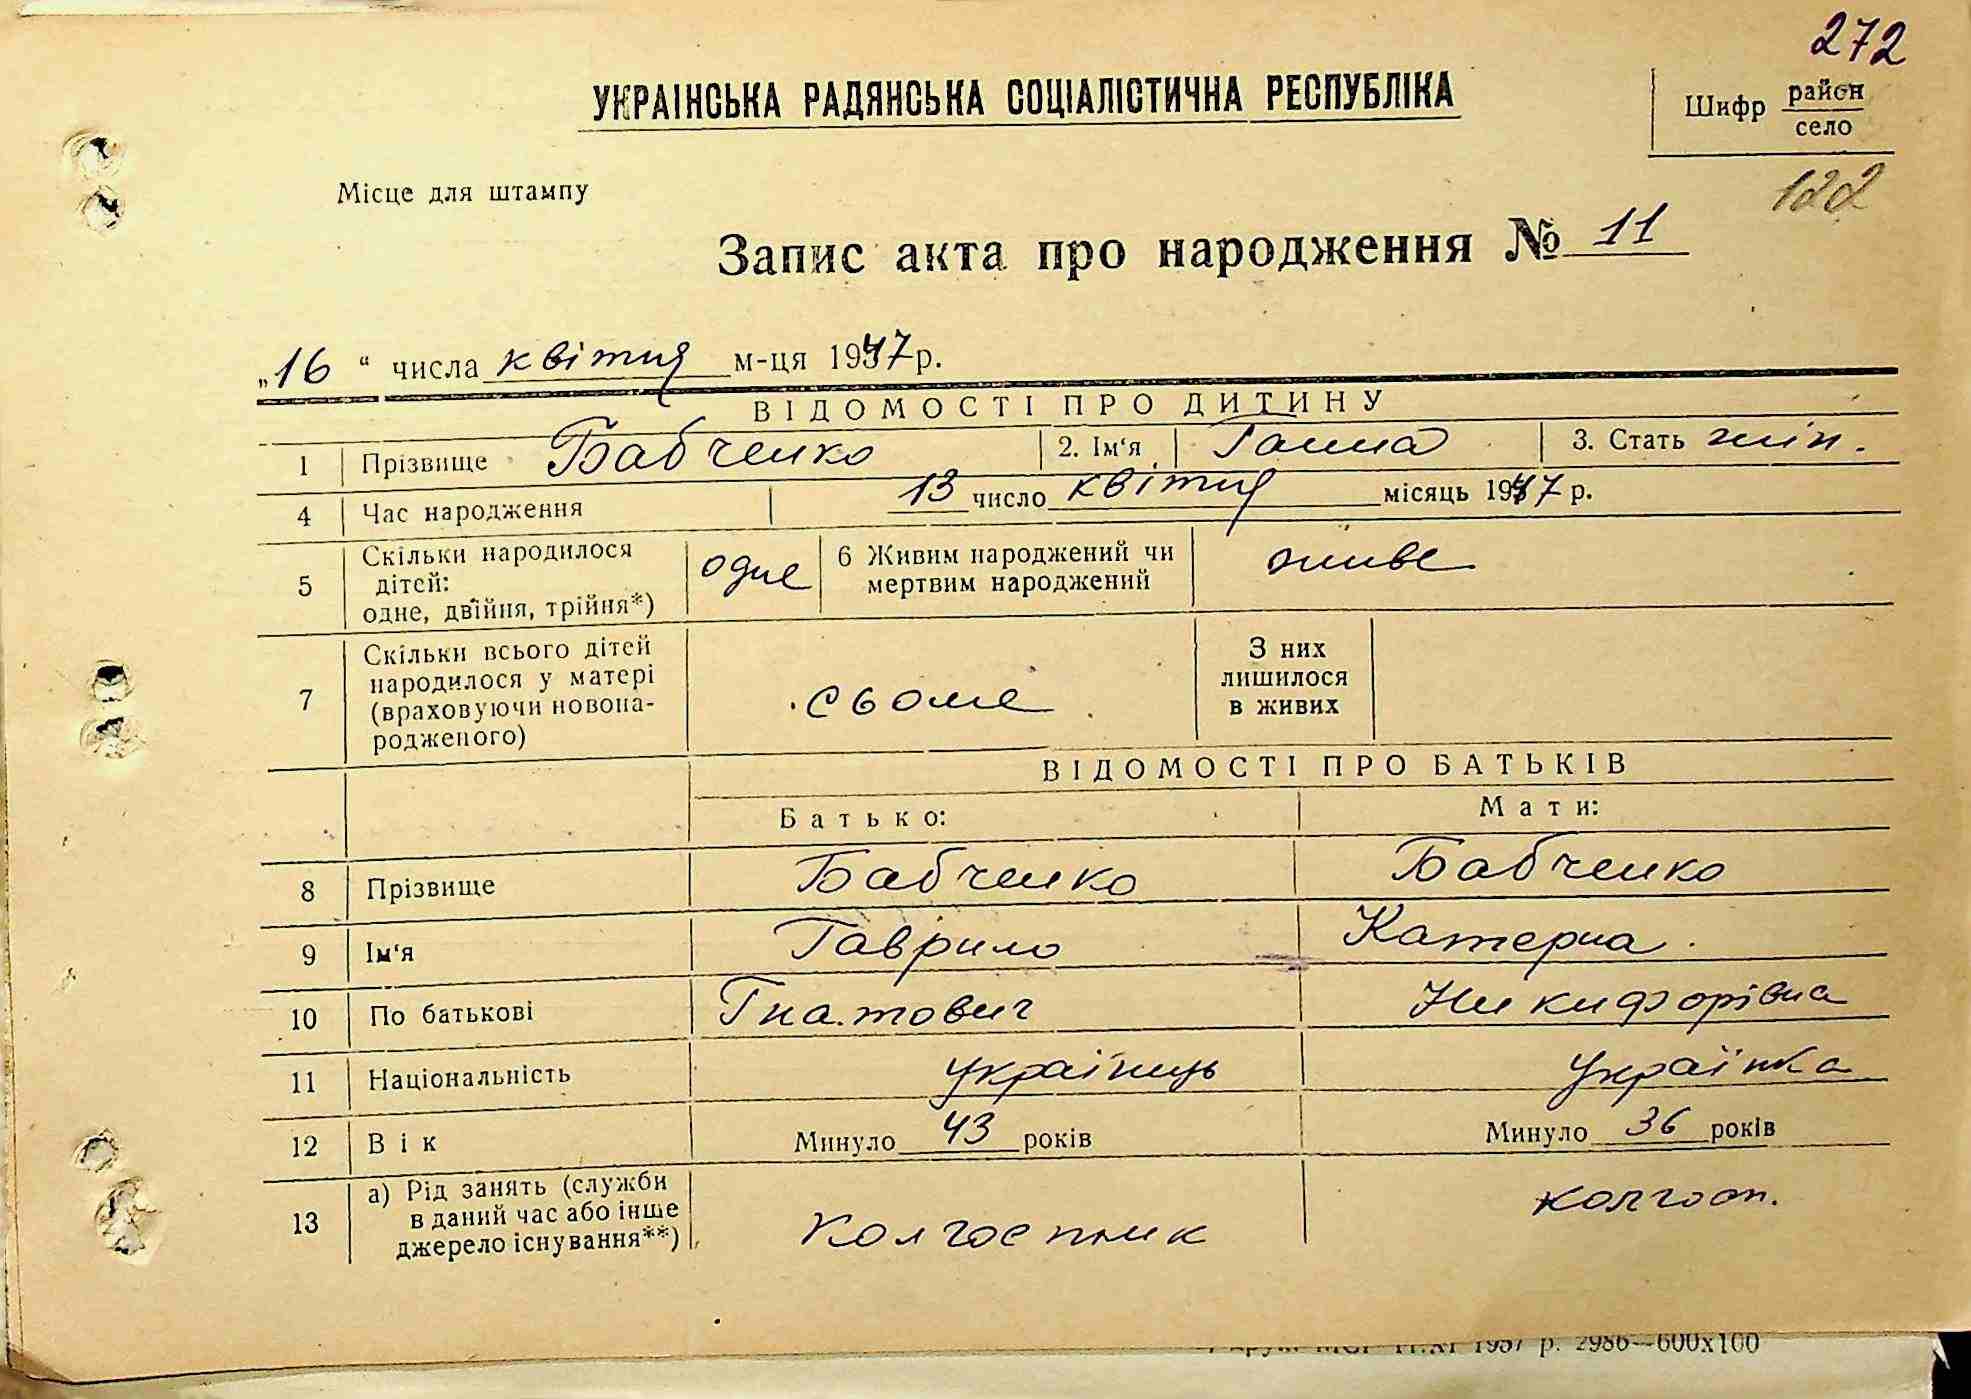 272
УКРАІНСЬКА РАДЯНСЬКА СОЦІАЛІСТИЧНА РЕСПУБЛІКА
Шифр район
село
122
Місце для штампу
Запис акта про народження № 11
„16“ числа квітня м-ця 1947 р.
ВІДОМОСТІ ПРО ДИТИНУ
1 Прізвище Бабченко 2. Ім‘я Ганна 3. Стать жін.
4 Час народження 13 число квітня місяць 1947 р.
5 Скільки народилося дітей: одне, двійня, трійня*) одне 6 Живим народжений чи мертвим народжений живе
7 Скільки всього дітей народилося у матері (враховуючи новона-родженого) сьоме З них лишилося в живих
ВІДОМОСТІ ПРО БАТЬКІВ
Батько: Мати:
8 Прізвище Бабченко Бабченко
9 Ім‘я Гаврило Катерна.
10 По батькові Гнатович Никифорівна
11 Національність українець українка
12 Вік Минуло 43 років Минуло 36 років
13 а) Рід занять (служби в даний час або інше джерело існування**) Колгоспник колгосп.
1957 р. 2986—600х100